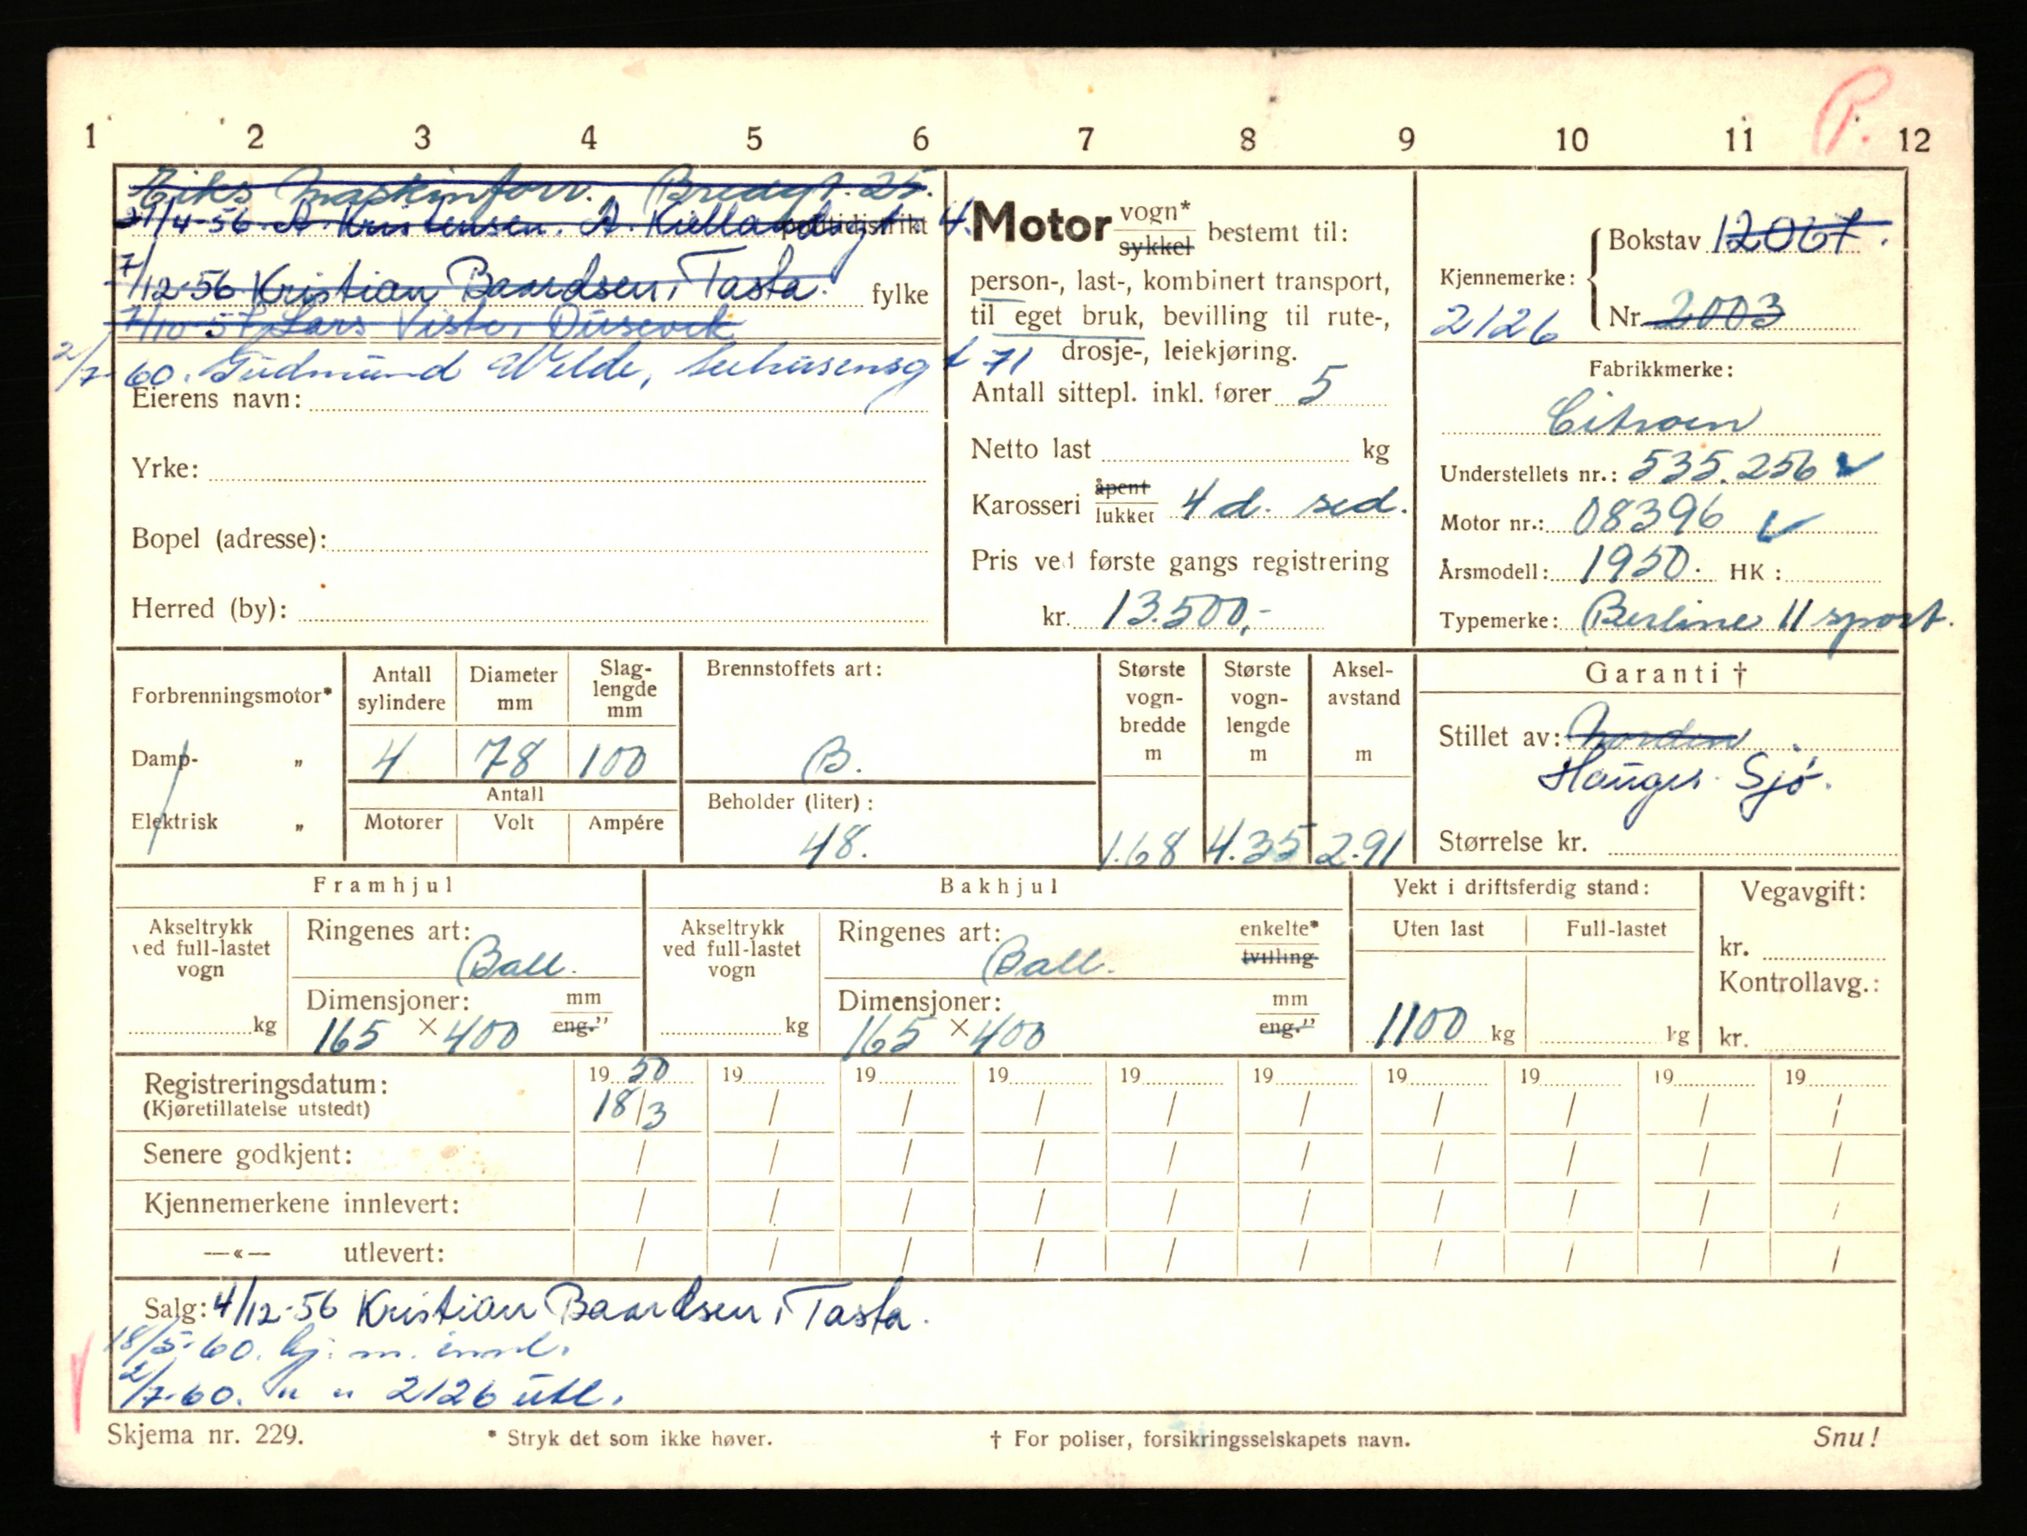 1 2 3 4 5 6 7 8 9 10 11 12
P.
Eiks Maskinforr. Bredgt. 25.
21/4-56. A. Kristensen. A. Kiellandsgt. 4.
politidistrikt
7/12-56 Kristian Baardsen, Tasta.
fylke
7/10-57 Lars Viste, Dusevik
2/7-60. Gudmund Welde, Seehusensgt 71
Eierens navn:
Yrke:
Bopel (adresse):
Herred (by):
Motor vogn* sykkel bestemt til:
person-, last-, kombinert transport,
til eget bruk, bevilling til rute-,
drosje-, leiekjøring.
Antall sittepl. inkl. fører 5
Netto last kg
Karosseri åpent lukket 4 d. sed.
Pris ved første gangs registrering
kr. 13.500,-
Kjennemerke: Bokstav 12067.
2126 Nr. 2003
Fabrikkmerke:
Citroen
Understellets nr.: 535.256
Motor nr.: 08396
Årsmodell: 1950. HK:
Typemerke: Berline 11 sport.
Forbrenningsmotor*
Damp- „
Elektrisk „
Antall sylindere Diameter mm Slaglengde mm
4 78 100
Antall
Motorer Volt Ampére
Brennstoffets art:
B.
Beholder (liter):
48.
Største vogn-bredde m Største vogn-lengde m Aksel-avstand m
1.68 4.35 2.91
Garanti †
Stillet av: Norden
Hauges Sjø.
Størrelse kr.
Framhjul
Akseltrykk ved full-lastet vogn
kg
Ringenes art:
Ball.
Dimensjoner: mm eng."
165 × 400
Bakhjul
Akseltrykk ved full-lastet vogn
kg
Ringenes art: enkelte* tvilling
Ball.
Dimensjoner: mm eng."
165 × 400
Vekt i driftsferdig stand:
Uten last Full-lastet
1100 kg kg
Vegavgift:
kr.
Kontrollavg.:
kr.
Registreringsdatum: 19 50 19 19 19 19 19 19 19 19 19
(Kjøretillatelse utstedt) 18/3 / / / / / / / / /
Senere godkjent: / / / / / / / / / /
Kjennemerkene innlevert: / / / / / / / / / /
—«— utlevert: / / / / / / / / / /
Salg: 4/12-56 Kristian Baardsen, Tasta.
18/5-60. kj. m. innl.
2/7-60. " " 2126 utl.
Skjema nr. 229.
* Stryk det som ikke høver.
† For poliser, forsikringsselskapets navn.
Snu!